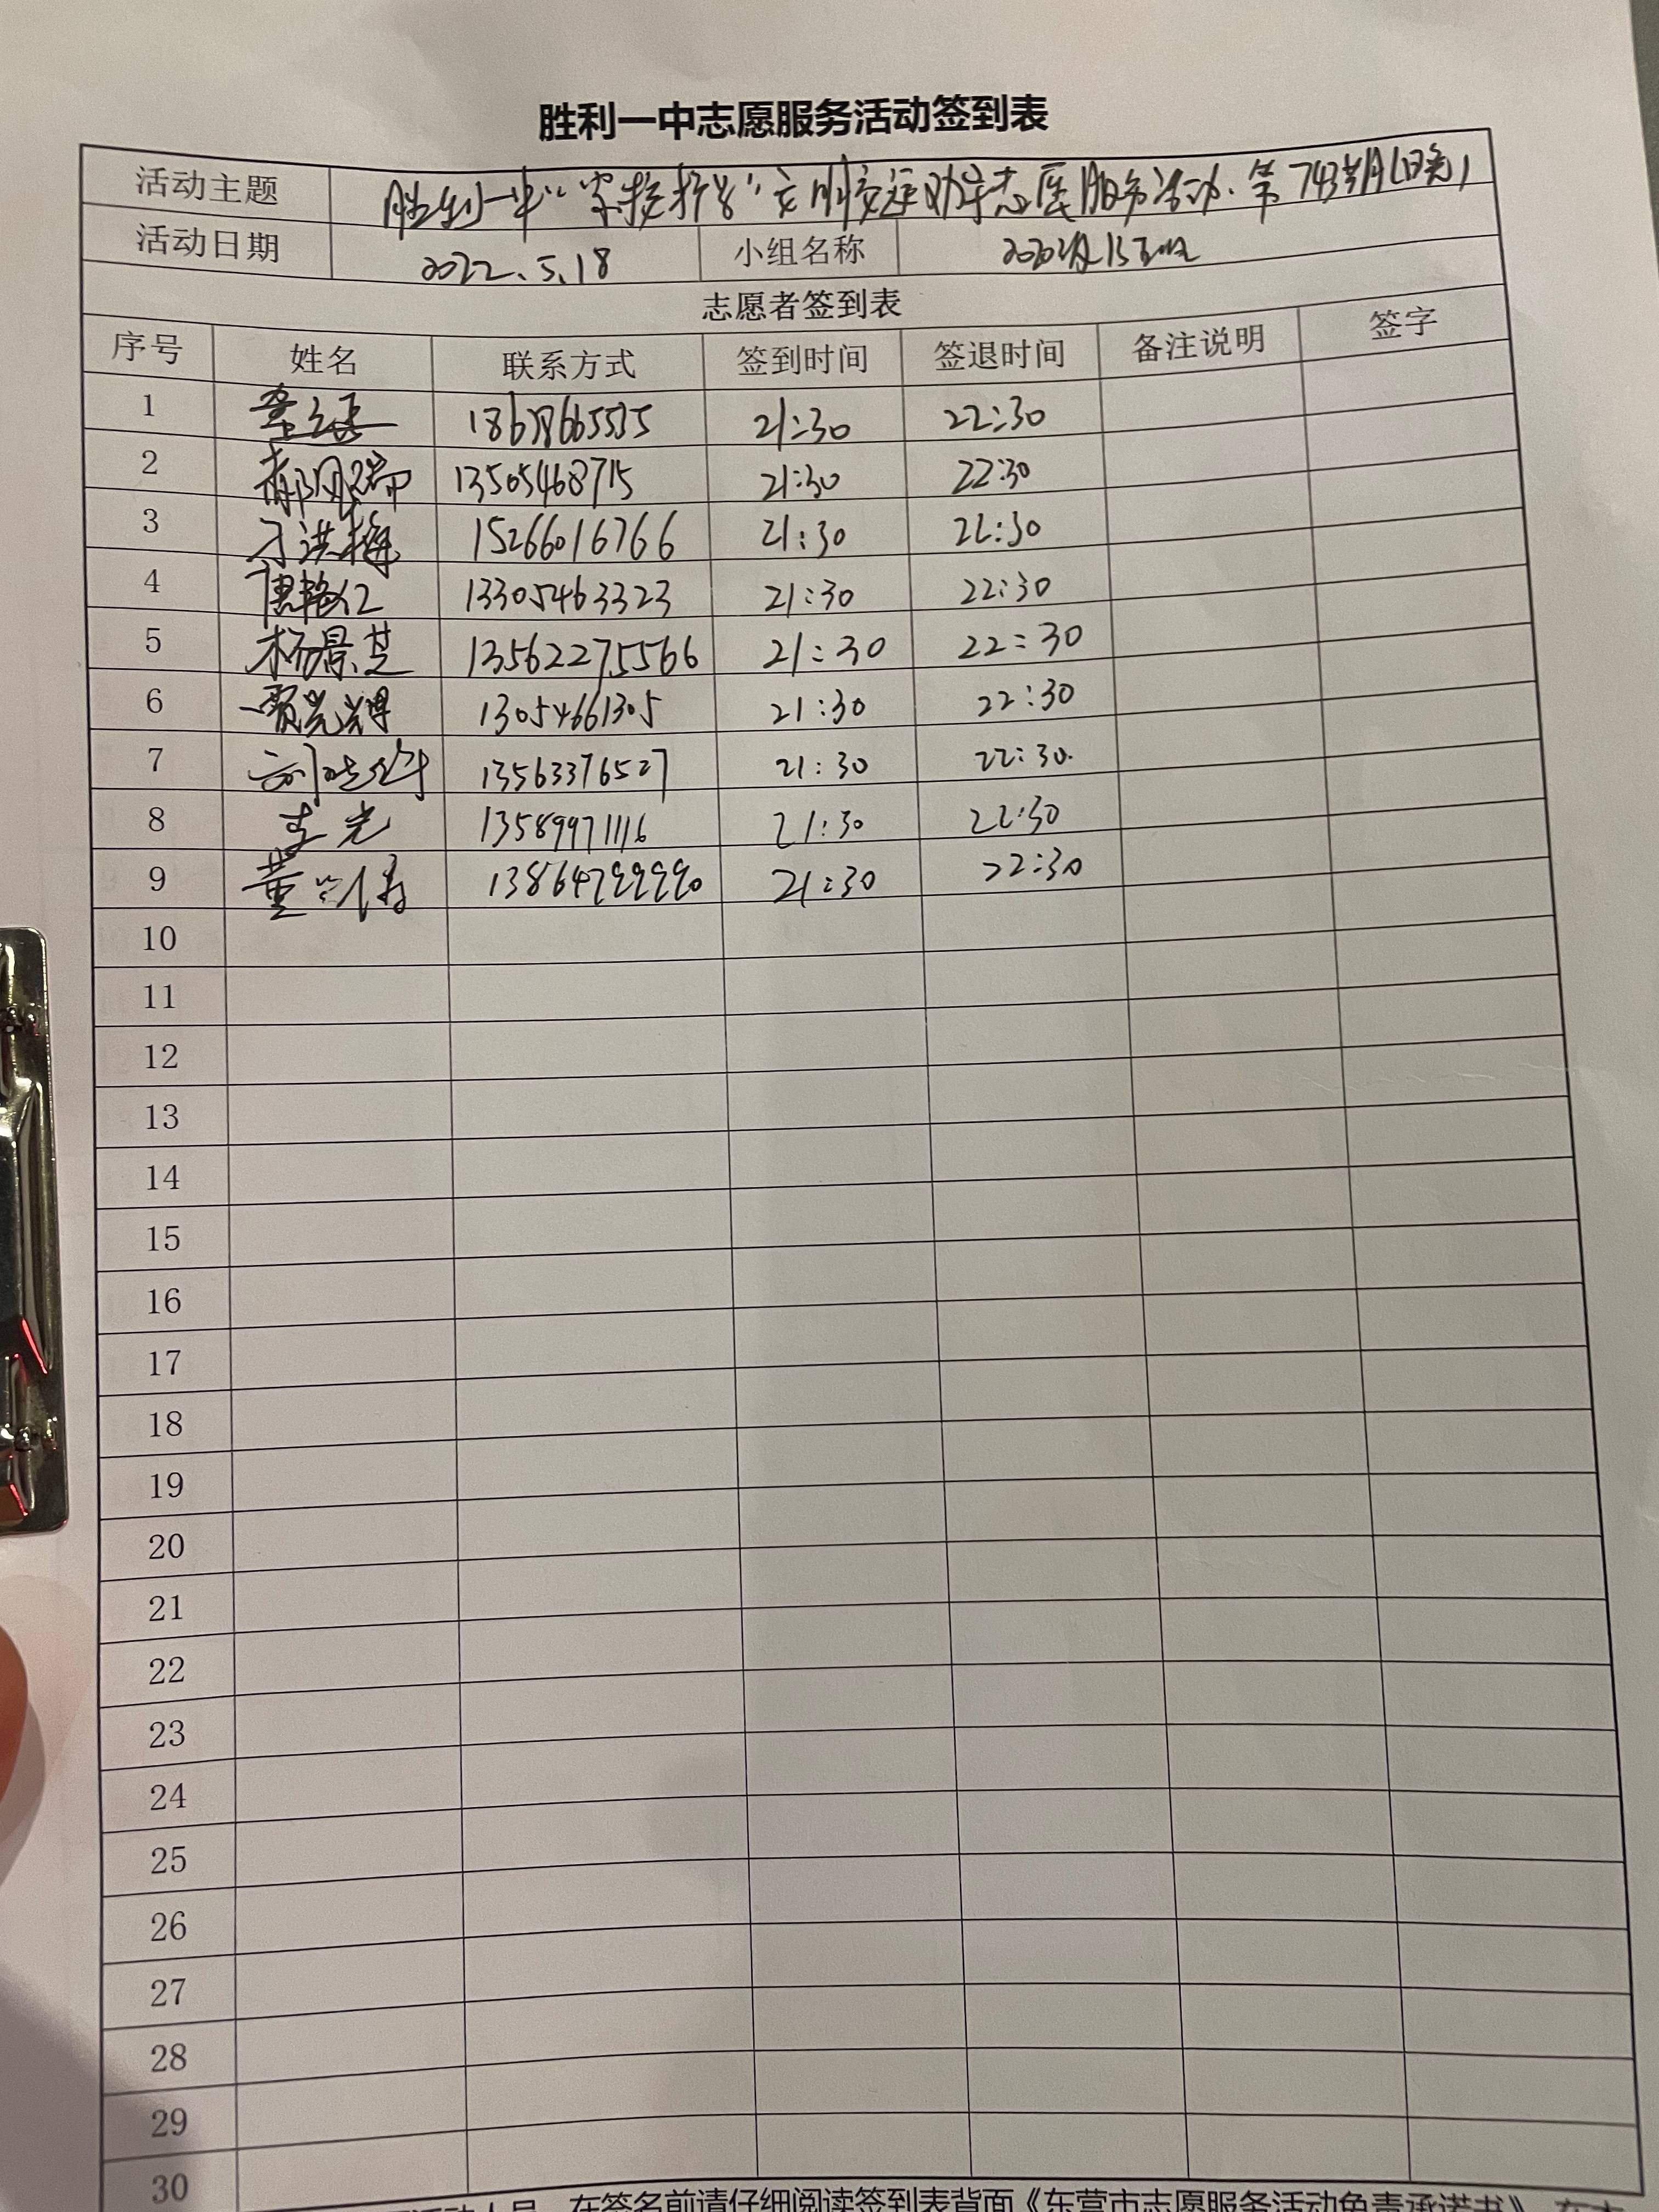 胜利一中志愿服务活动签到表
活动主题 胜利一中"家校携手"文明交通劝导志愿服务活动.第743岁月(日晚)
活动日期 2022.5.18 小组名称 2020级15
志愿者签到表
序号 姓名 联系方式 签到时间 签退时间 备注说明 签字
1 21:30 22:30
2 13505468715 21:30 22:30
3 刁洪梅 15266016766 21:30 22:30
4 唐艳红 13305463323 21:30 22:30
5 杨景芝 13562275566 21:30 22:30
6 贾光辉 13054661305 21:30 22:30
7 13563376527 21:30 22:30.
8 李光 13589971116 21:30 22:30
9 21:30 22:30
10
11
12
13
14
15
16
17
18
19
20
21
22
23
24
25
26
27
28
29
30
活动人员，在签名前请仔细阅读签到表背面《东营市志愿服务活动免责承诺书》